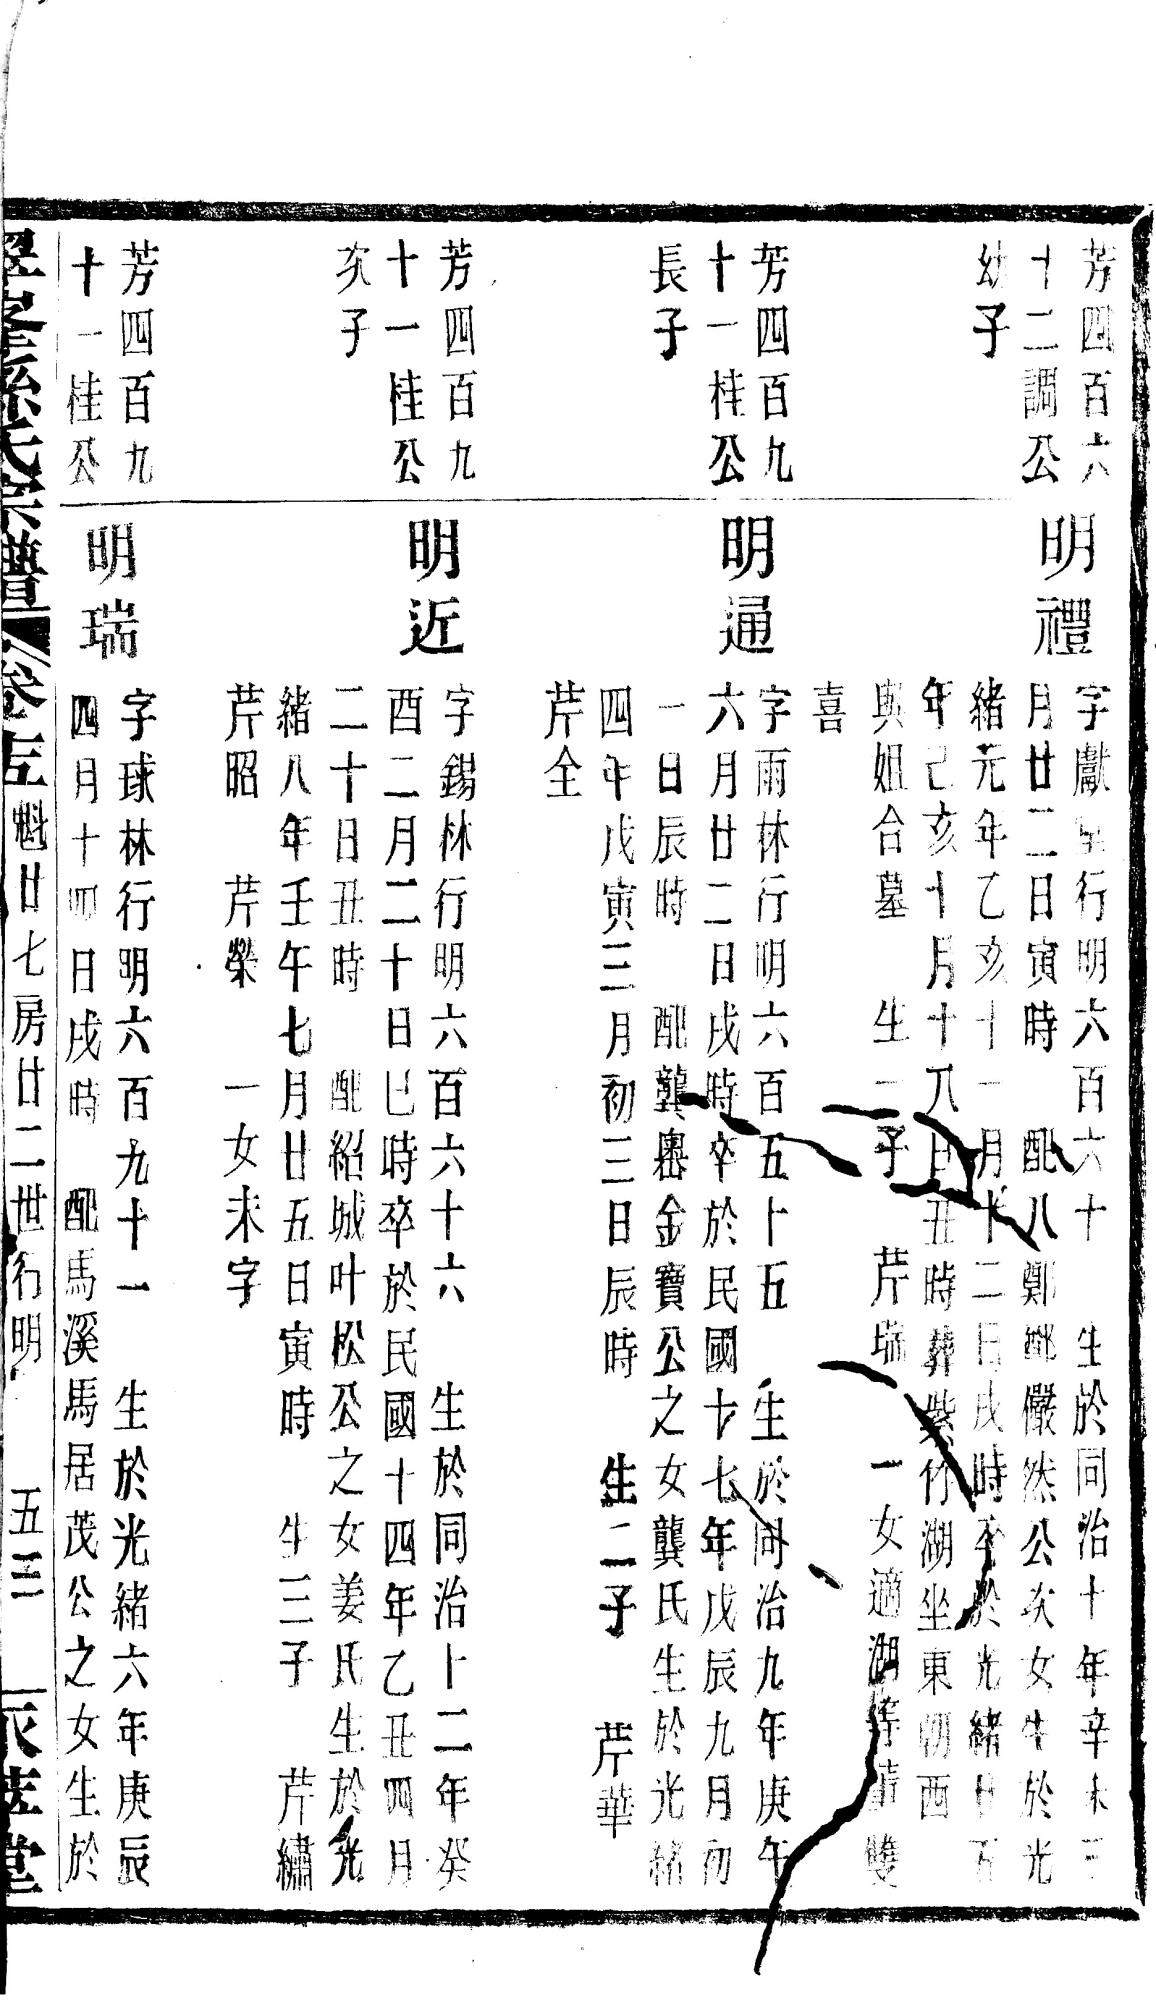 芳四百六
十二調公
幼子
明禮
字獻行明六百六十 生於同治十年辛未三
月廿二日寅時 配八鄭儼然公次女生於光
緒元年乙亥十一月十二日戌時卒於光緒廿五
年己亥十月十八日丑時葬紫竹湖坐東朝西
與姐合墓 生一子 芹瑞 一女適湖雙
喜
芳四百九
十一桂公
長子
明通
字雨林行明六百五十五 生於同治九年庚午
六月廿二日戌時卒於民國十七年戊辰九月初
一日辰時 配龔嶴金寶公之女龔氏生於光緒
四年戊寅三月初三日辰時 生二子 芹華
芹全
芳四百九
十一桂公
次子
明近
字錫林行明六百六十六 生於同治十二年癸
酉二月二十日巳時卒於民國十四年乙丑四月
二十日丑時 配紹城叶松公之女姜氏生於光
緒八年壬午七月廿五日寅時 生三子 芹繡
芹昭 芹榮 一女未字
芳四百九
十一桂公
明瑞
字球林行明六百九十一 生於光緒六年庚辰
四月十四日戌時 配馬溪馬居茂公之女生於
孫氏宗譜 卷 魁廿七房廿二世行明 五三 堂